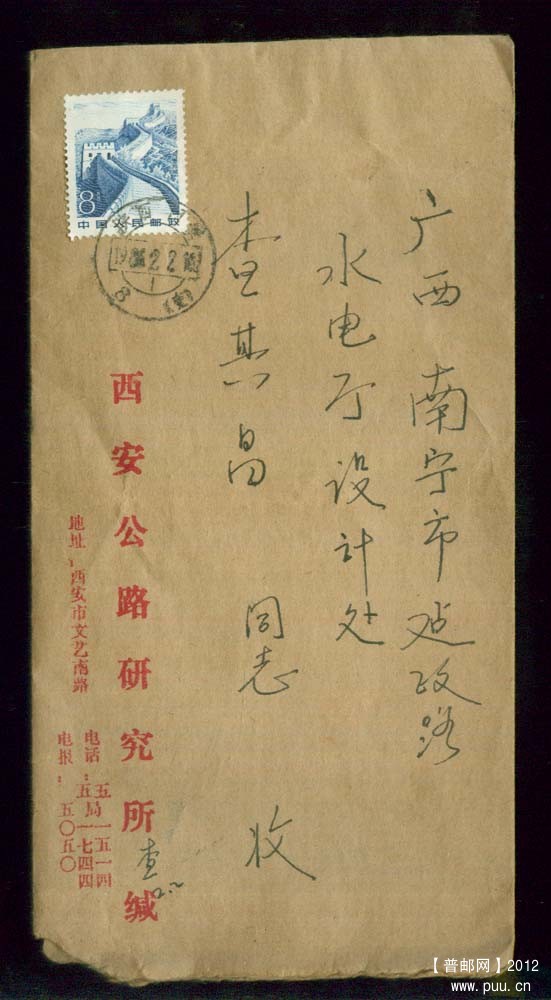 广西 南宁市 建政路
水电厅设计处
查其昌 同志 收
8
中国人民邮政
西安公路研究所缄
地址:西安市文艺南路
电话:五局一五一四
一七四四
电报:五〇五〇
查
【普邮网】2012
www.puu.cn